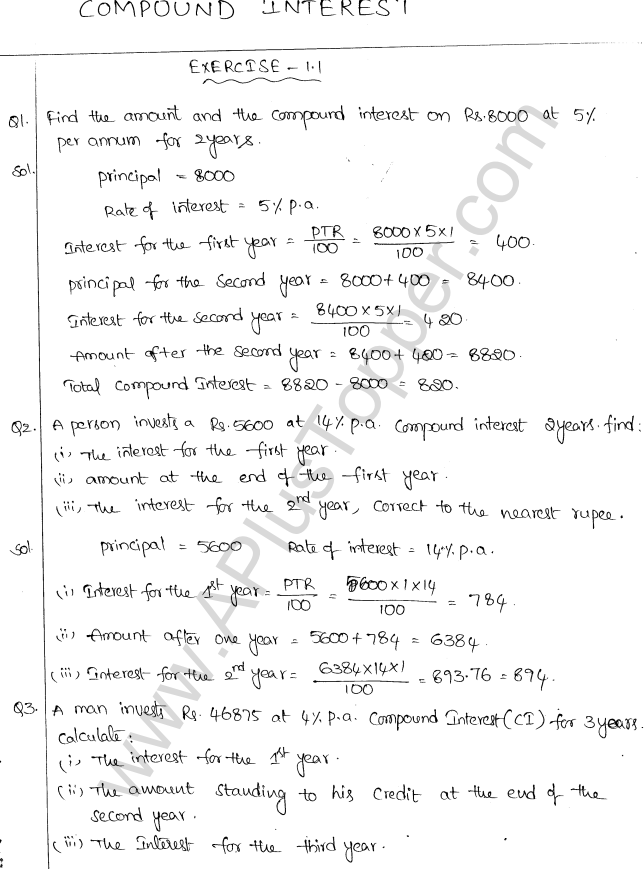 COMPOUND INTEREST
EXERCISE - 1.1
Q1. Find the amount and the compound interest on Rs.8000 at 5%
per annum for 2years.
Sol. principal = 8000
Rate of interest = 5% p.a.
Interest for the first year = PTR/100 = 8000×5×1/100 = 400.
principal for the second year = 8000+400 = 8400.
Interest for the second year = 8400×5×1/100 = 420.
Amount after the second year = 8400+420 = 8820.
Total compound Interest = 8820 - 8000 = 820.
Q2. A person invests a Rs.5600 at 14% p.a. compound interest 2years. find:
(i) The interest for the first year.
(ii) amount at the end of the first year.
(iii) The interest for the 2nd year, correct to the nearest rupee.
Sol. principal = 5600 Rate of interest = 14% p.a.
(i) Interest for the 1st year = PTR/100 = 5600×1×14/100 = 784.
(ii) Amount after one year = 5600+784 = 6384.
(iii) Interest for the 2nd year = 6384×14×1/100 = 893.76 = 894.
Q3. A man invests Rs. 46875 at 4% p.a. compound Interest(CI) for 3years.
calculate:
(i) The interest for the 1st year.
(ii) The amount standing to his credit at the end of the
second year.
(iii) The Interest for the third year.
www.APlusTopper.com